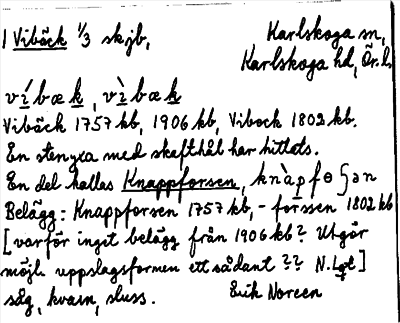 1 Vibäck 1/3 skjb, Karlskoga sn,
Karlskoga hd, Ör. l.
ví bæk, vì bæk
Vibäck 1757 kb, 1906 kb, Vibock 1802 kb.
En stenyxa med skafthål har hittats.
En del kallas Knappforsen, knàpfoʃən
Belägg: Knapporsen 1757 kb, - forssen 1802 kb
[varför inget belägg från 1906 kb? Utgör
möjl. uppslagsformen ett sådant ?? N.]
såg, kvarn, sluss. Erik Noreen